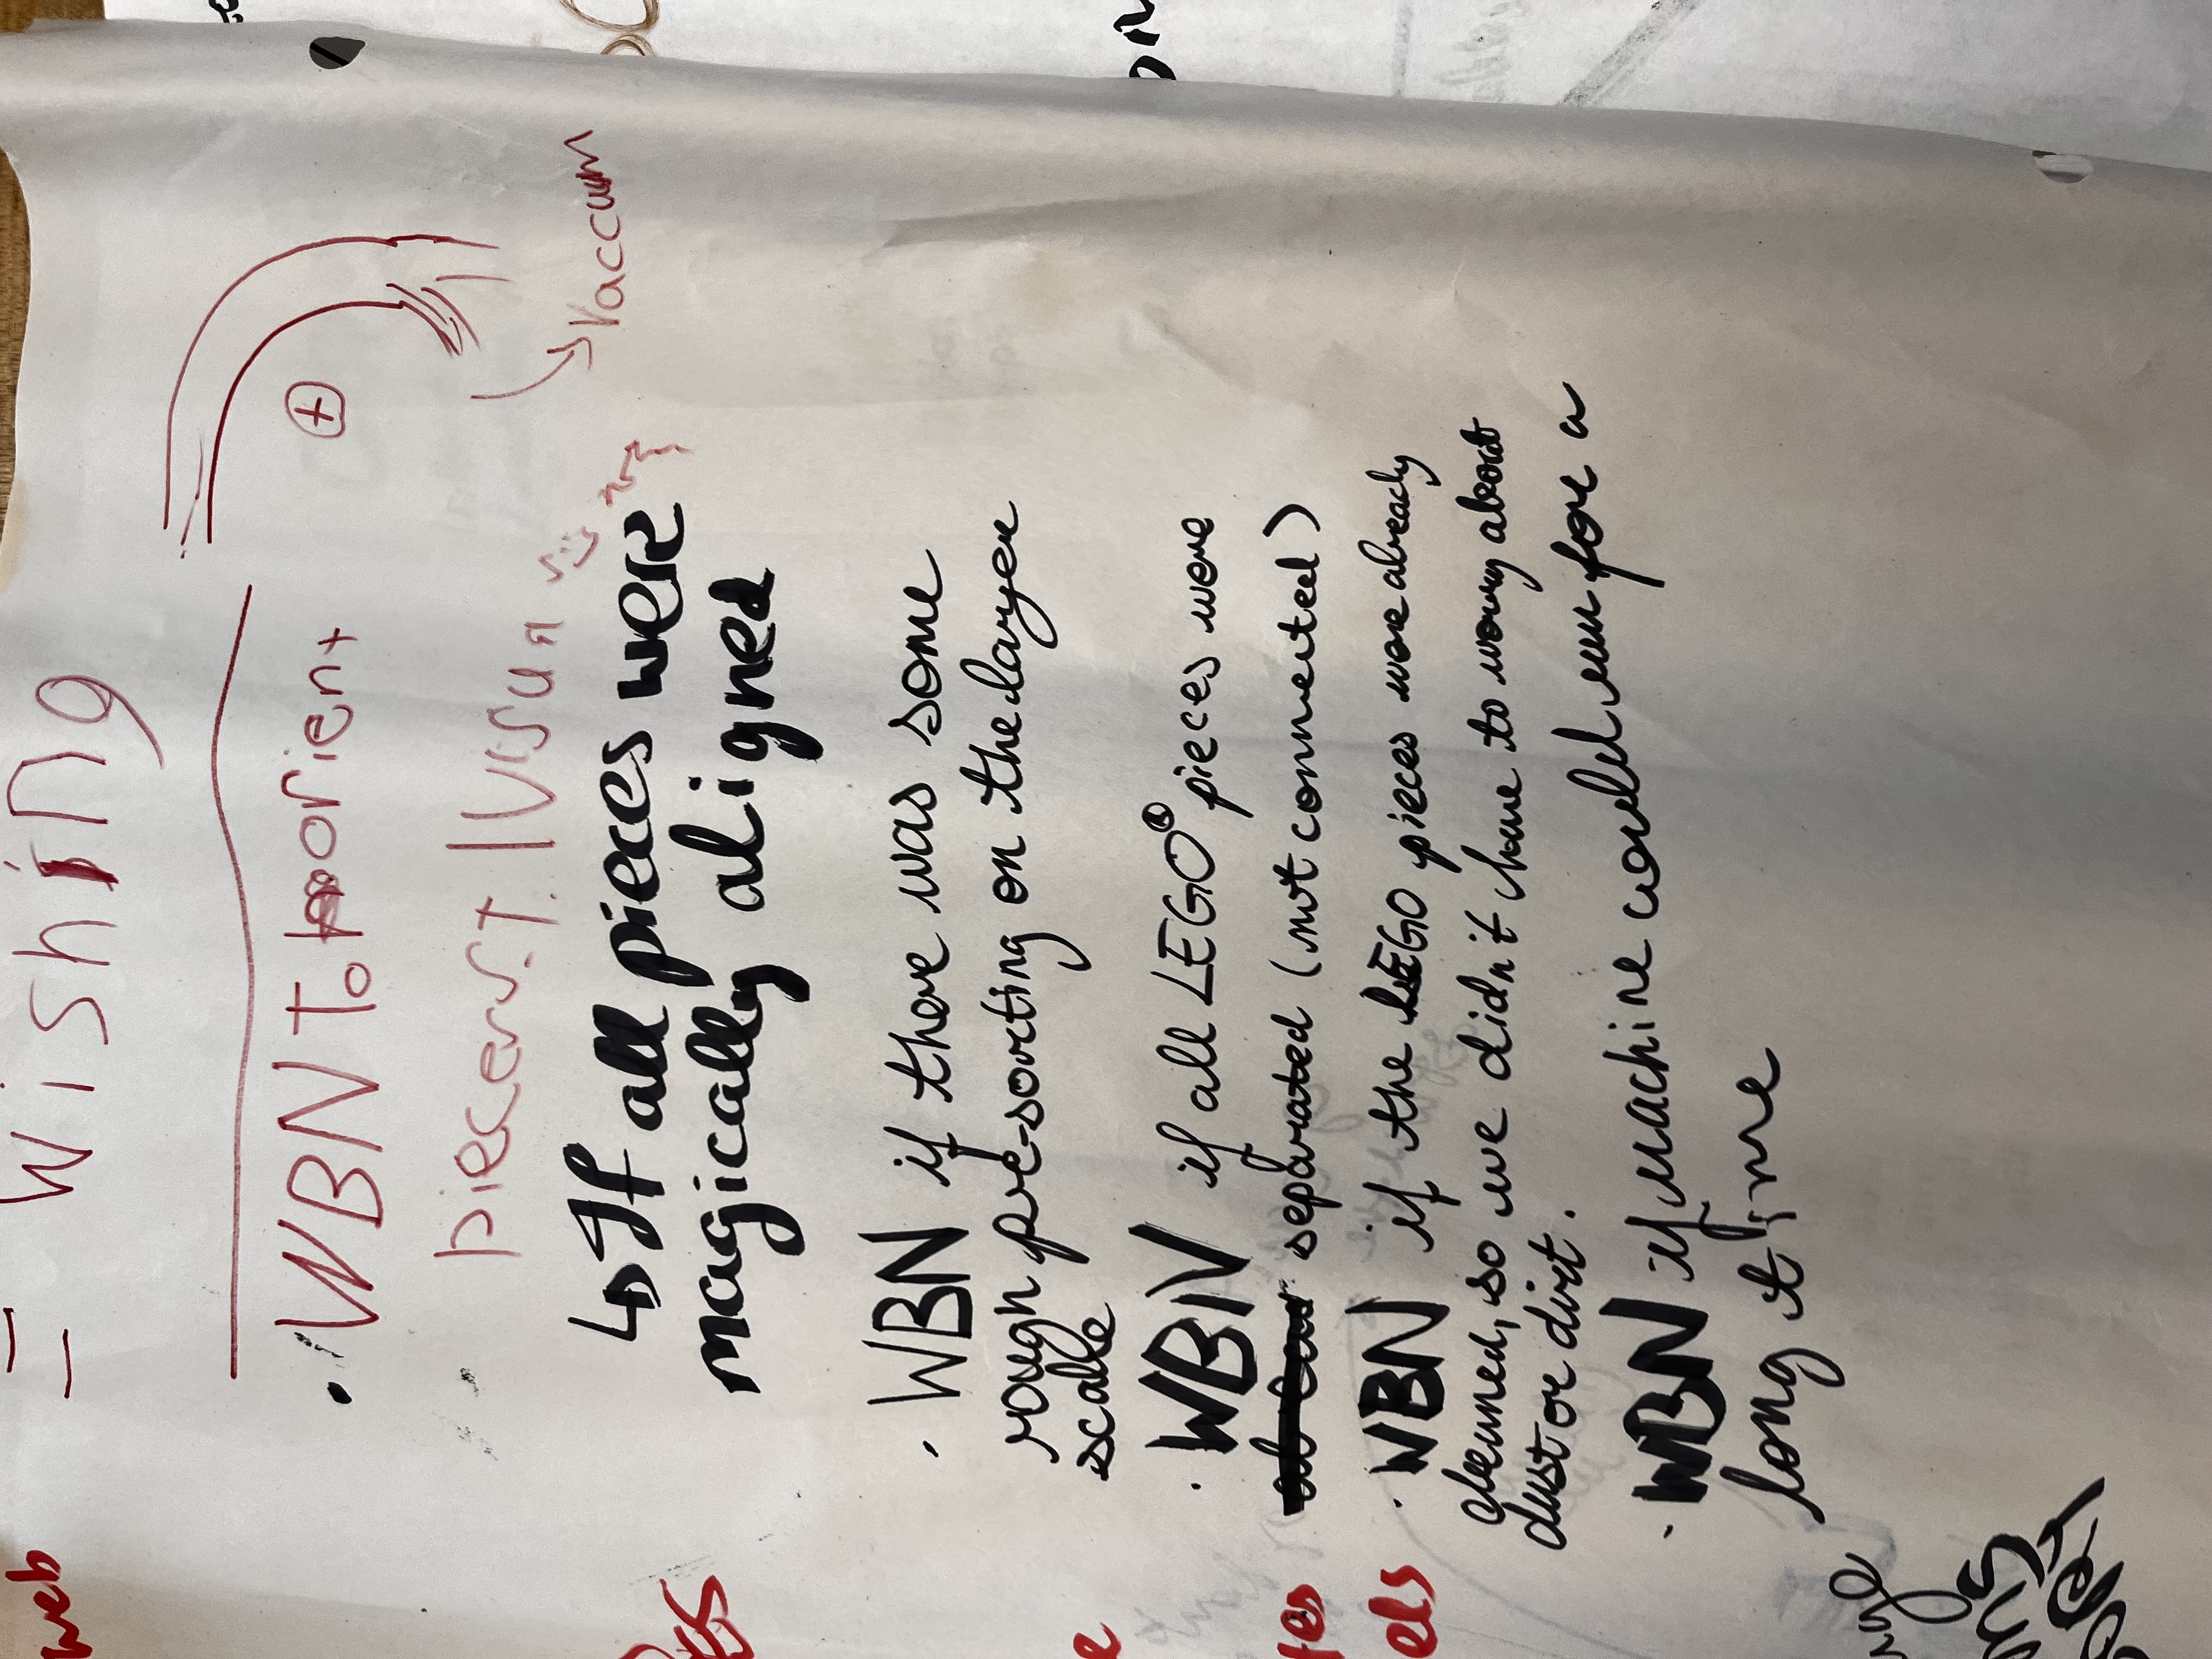 web
= Wishing
• WBN To orient
+
Vaccuum
↳ If all pieces were
magically aligned
· WBN if there was some
rough pre-sorting on the larger
scale
· WBN if all LEGO® pieces were
separated (not connected)
· WBN if the LEGO pieces were already
cleaned, so we didn't have to worry about
dust or dirt.
· WBN if machine could run for a
long time